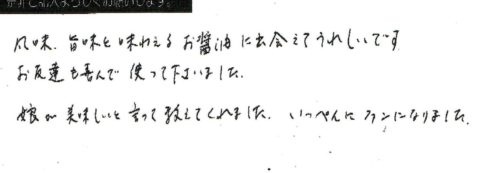 風味、旨味と味わえるお醤油に出会えてうれしいです
お友達も喜んで使って下さいました。
娘が美味しいと言って教えてくれました。いっぺんにファンになりました。